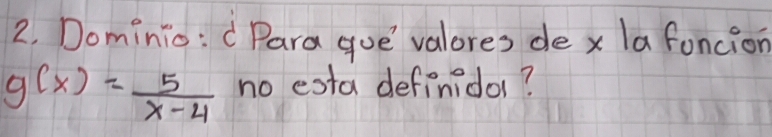 2. Dominio: ¿Para qué valores de x la función
g(x) = 5/(x-4) no esta definida?